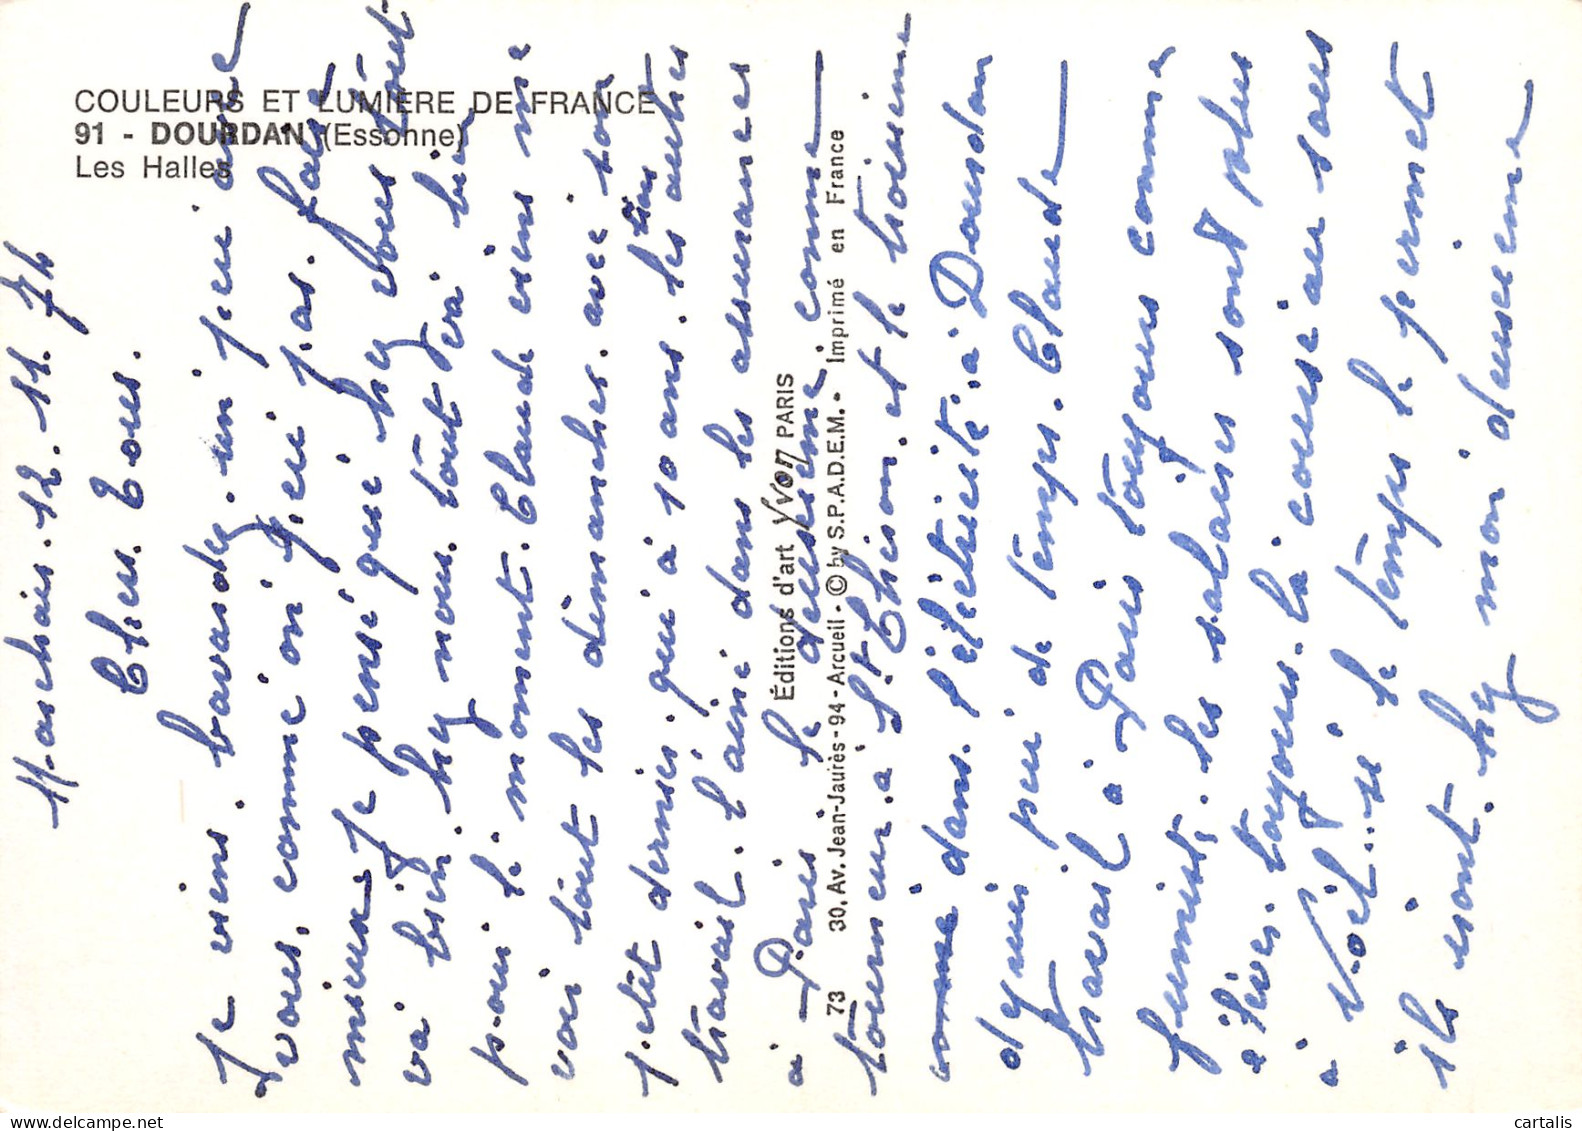 COULEURS ET LUMIÈRE DE FRANCE
91 - DOURDAN (Essonne)
Les Halles
Éditions d'art Yvon PARIS
73 30, Av. Jean-Jaurès - 94 - Arcueil - © by S.P.A.D.E.M. - Imprimé en France
12. 11. 74
Chers Tous.
Je viens bavardez un peu avec
vous, comme on geui pas. faire
mieux. Je pense que hy vous tout
va bien. hy nous. tout va bien
pour le moment. Claude viens me
voir tout les dimanches. avec son
petit dernier. qui à 10 ans. les autres
travail. l'ainé dans les assurances
à Paris le deuxieme comme
tourneur. a St Chéron. et le troisieme
comme dans. l'éléctricité. à Dourdan
depuis peu de temps. Claude
travail à Paris toujours comme
les salaires sont plus
élèver. toujours. la course au sous
à Noël. si le temps le permet
ils iront. hy mon deuxieme